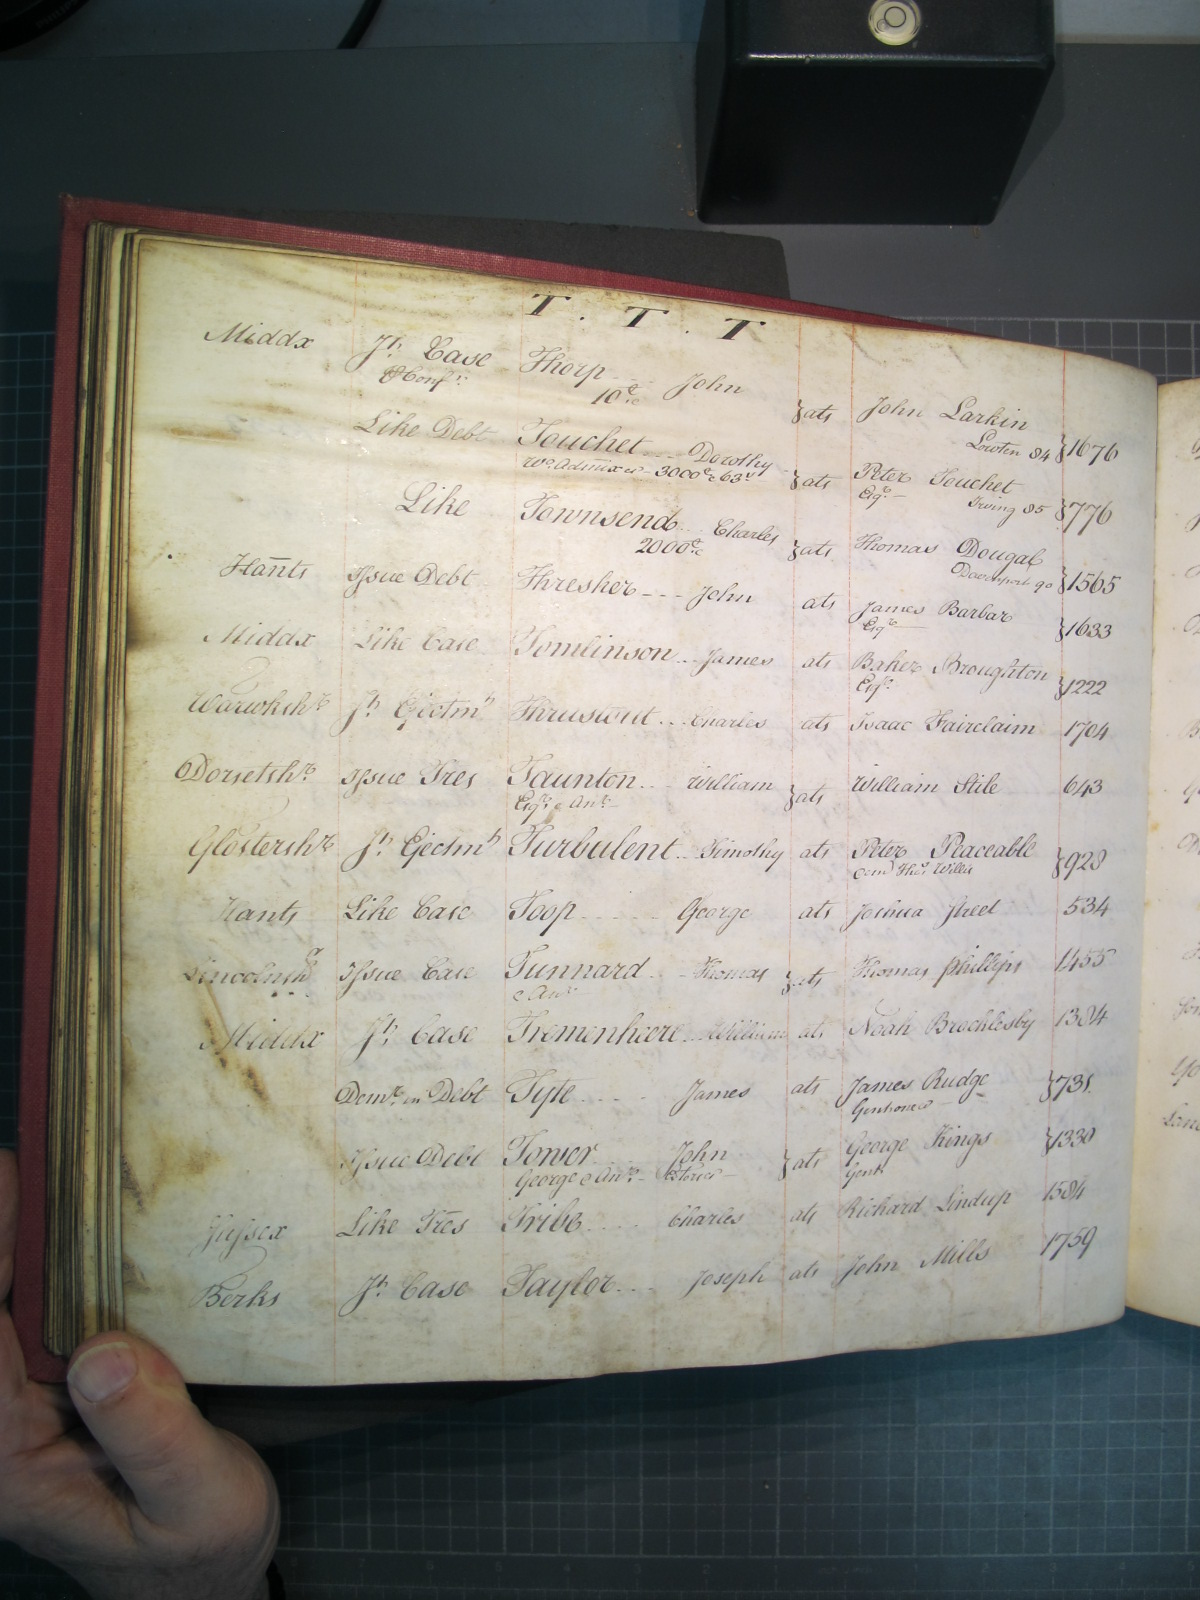 T. T. T
Middx Jt. Case Thorp John } ats John Larkin } 1676
& Conf. 10£ Lowten 84
Like Debt Touchet Dorothy } ats Peter Touchet } 776
3000£ & 63s Esqr. Irving 85
Like Townsend Charles } ats Thomas Dougal } 1565
2000£ Davenport 90
Hants Issue Debt Thresher John ats James Barbar } 1633
Esqr.
Middx Like Case Tomlinson James ats Baker Broughton } 1222
Esqr.
Warwckshre Jt. Ejectmt Thrustout Charles ats Isaac Fairclaim 1704
Dorsetshre Issue Tres Taunton William } ats William Stile 643
Esqr. & Anr.
Glostershre Jt. Ejectmt Turbulent Timothy ats Peter Peaceable } 928
Dem Thos. Willis
Hants Like Case Toop George ats Joshua Street 534
Lincolnsh Issue Case Tunnard Thomas } ats Thomas Phillips 1455
& Anr
Middx Jt. Case Tremenheere William ats Noah Brocklesby 1384
Demr. in Debt Tyte James ats James Rudge } 731
Gentone &
Issue Debt Tower John } ats George Kings } 1330
George & Anr. Gent
Sussex Like Tres Tribe Charles ats Richard Lindup 1584
Berks Jt. Case Taylor Joseph ats John Mills 1759